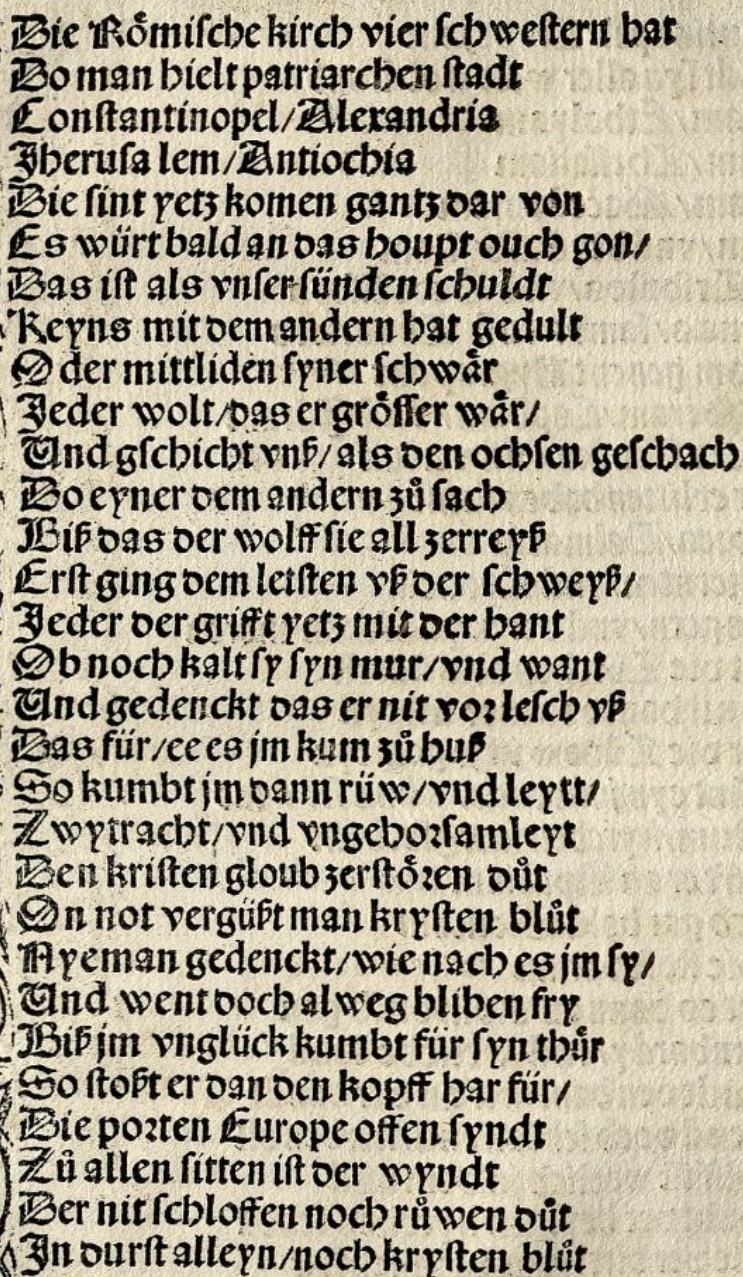 Die Roͤmiſche kirch vier ſchweſtern hat
Do man hielt patriarchen ſtadt
Conſtantinopel/Alexandria
Jheruſa lem/Antiochia
Die ſint yetz komen gantz dar von
Es würt bald an das houpt ouch gon/
Das iſt als vnſer ſünden ſchuldt
Keyns mit dem andern hat gedult
O der mittliden ſyner ſchwaͤr
Jeder wolt/das er groͤſſer waͤr/
Und gſchicht vnß/als den ochſen geſchach
Do eyner dem andern zuͦ ſach
Biß das der wolff ſie all zerreyß
Erſt ging dem leiſten vß der ſchweyß/
Jeder der grifft yetz mit der hant
Ob noch kalt ſy ſyn mur/vnd want
Und gedenckt das er nit voꝛ leſch vß
Das für/ee es jm kum zuͦ huß
So kumbt jm dann rüw/vnd leytt/
Zwytracht/vnd vngehoꝛſamleyt
Den kriſten gloub zerſtoͤꝛen duͦt
On not vergüßt man kryſten bluͦt
Nyeman gedenckt/wie nach es jm ſy/
Und went doch alweg bliben fry
Biß jm vnglück kumbt für ſyn thuͤr
So ſtoßt er dan den kopff har für/
Die poꝛten Europe offen ſyndt
Zuͦ allen ſitten iſt der wyndt
Der nit ſchloffen noch ruͦwen duͦt
In durſt alleyn/noch kryſten bluͦt